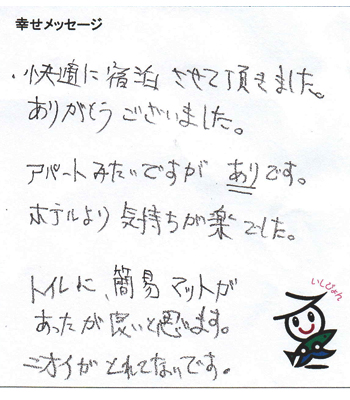 幸せメッセージ
・快適に宿泊させて頂きました。
ありがとうございました。
アパートみたいですがありです。
ホテルより気持ちが楽でした。
トイレに、簡易マットが
あったが良いと思います。
ニオイがとれてないです。
いしぴょん